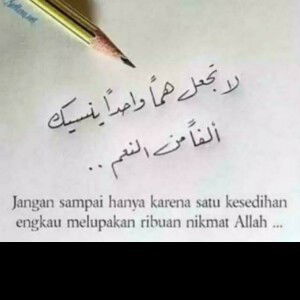 لا تجعل هماً واحداً ينسيك
ألفاً من النعم ..
Jangan sampai hanya karena satu kesedihan
engkau melupakan ribuan nikmat Allah ...